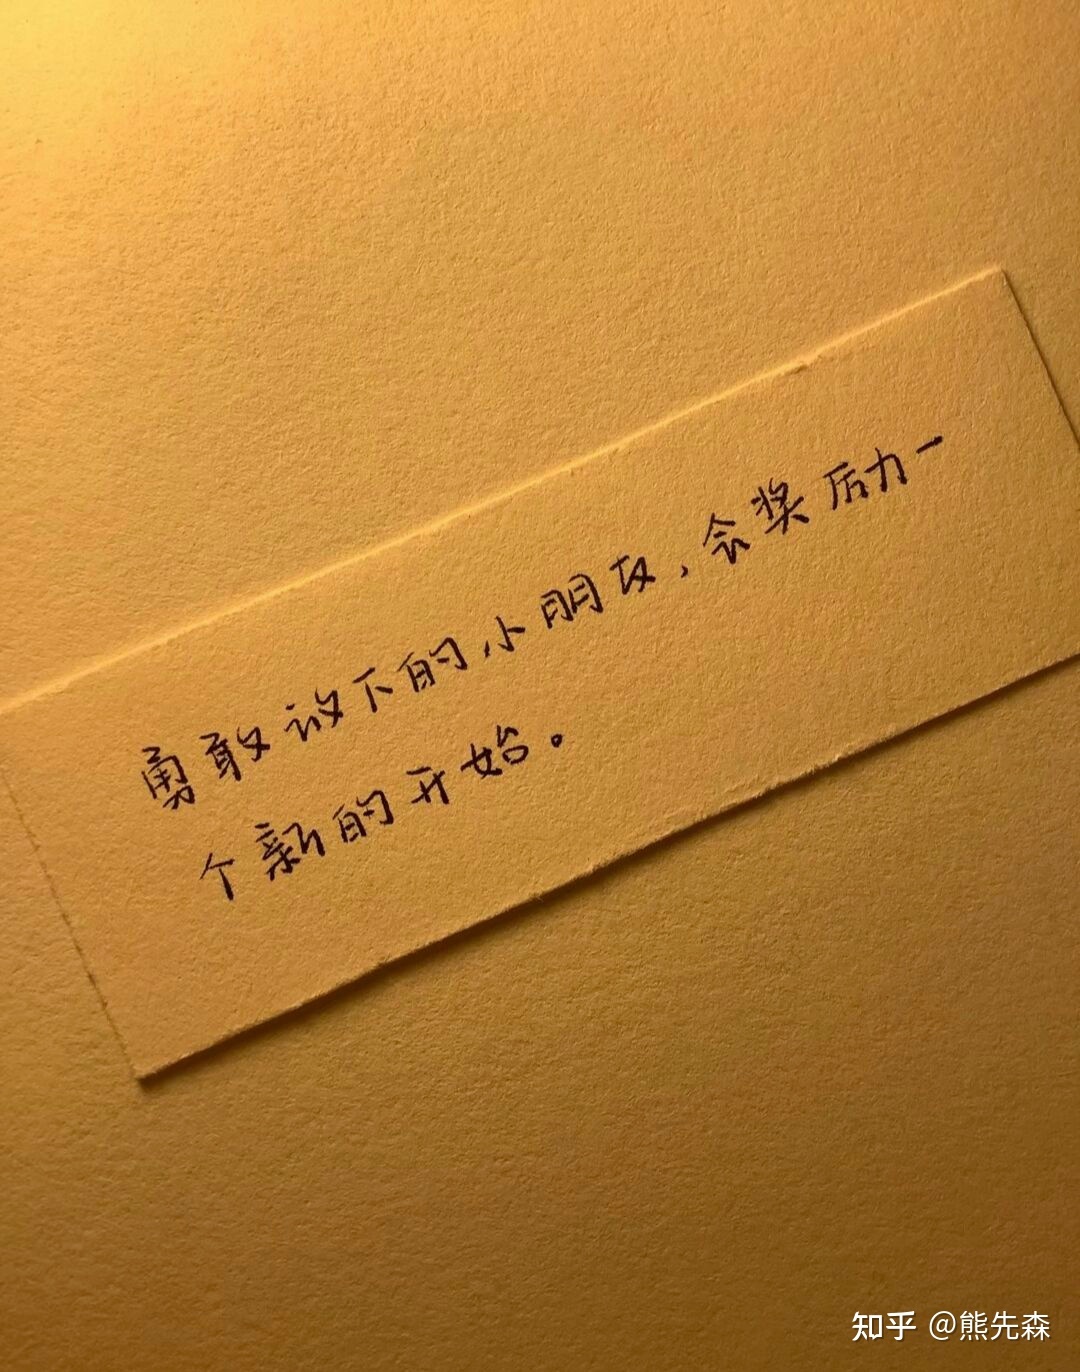 勇敢放下的小朋友，会奖励一
个新的开始。
知乎 @熊先森